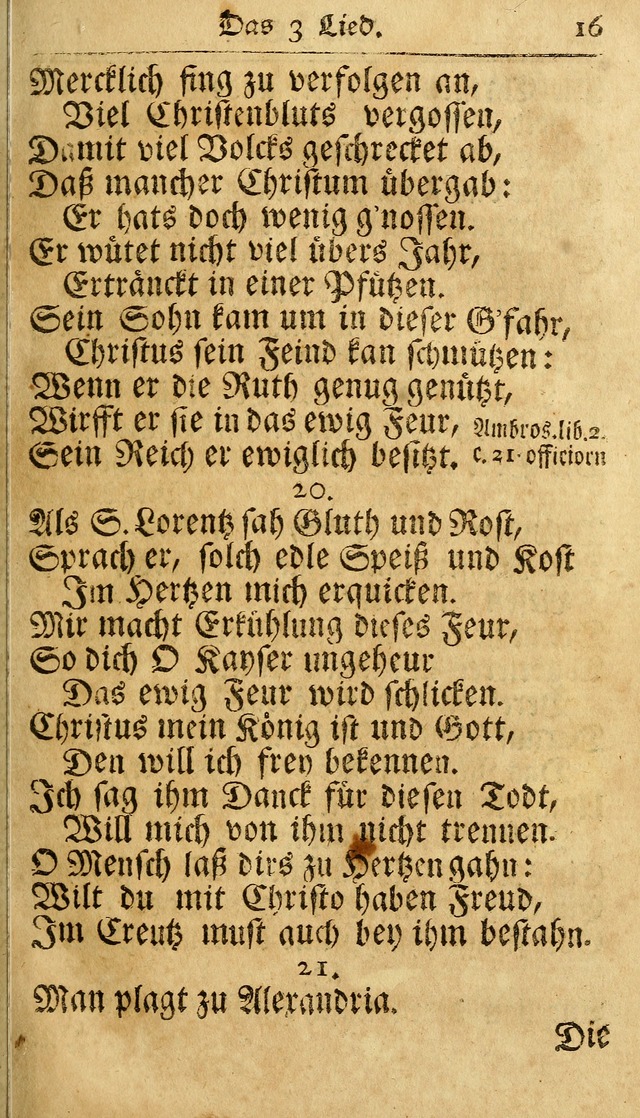 Das 3 Lied. 16
Mercklich fing zu verfolgen an,
Viel Christenbluts vergossen,
Damit viel Volcks geschrecket ab,
Daß mancher Christum uͤbergab:
Er hats doch wenig g'nossen.
Er wuͤtet nicht viel uͤbers Jahr,
Ertraͤnckt in einer Pfuͤtzen.
Sein Sohn kam um in dieser G'fahr,
Christus sein Feind kan schmuͤtzen:
Wenn er die Ruth genug genuͤtzt,
Wirfft er sie in das ewig Feur, Ambros. lib. 2.
Sein Reich er ewiglich besitzt. c. 21. officiorn
20.
Als S. Lorentz sah Gluth und Rost,
Sprach er, solch edle Speiß und Kost
Im Hertzen mich erquicken.
Mir macht Erkuͤhlung dieses Feur,
So dich O Kayser ungeheur
Das ewig Feur wird schlicken.
Christus mein Koͤnig ist und Gott,
Den will ich frey bekennen.
Ich sag ihm Danck fuͤr diesen Todt,
Will mich von ihm nicht trennen.
O Mensch laß dirs zu Hertzen gahn:
Wilt du mit Christo haben Freud,
Im Creutz must auch bey ihm bestahn.
21.
Man plagt zu Alexandria.
Die